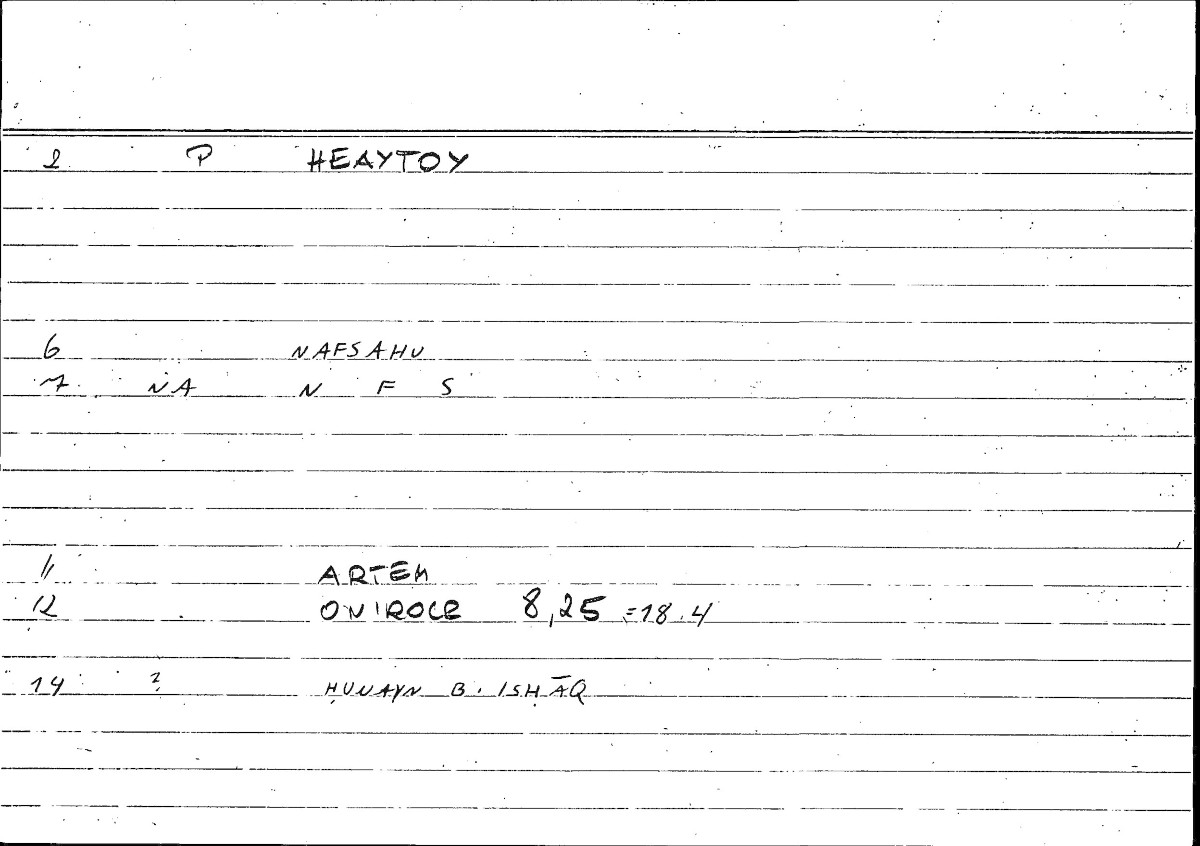 2 P HEAYTOY
6 NAFSAHU
7 NA N F S
11 ARTEM
12 ONIROCR 8,25 =18.4
14 ? ḤUNAYN B. ISḤĀQ